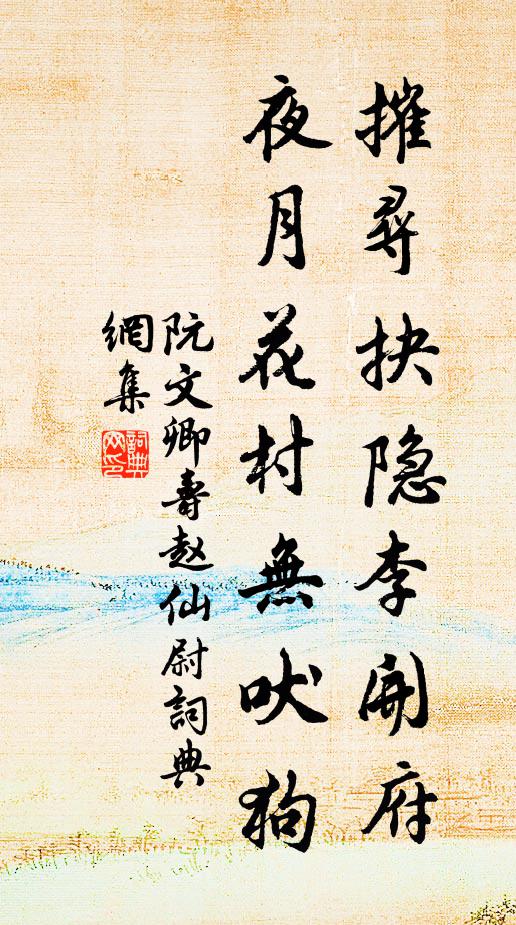 摧尋抉隐李開府
夜月花村無吠狗
阮文卿壽赵仙尉詞典
網集
詞典
网印